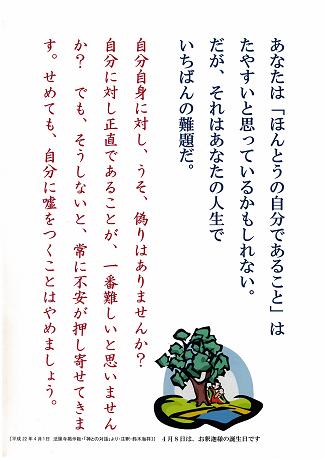 あなたは「ほんとうの自分であること」は
たやすいと思っているかもしれない。
だが、それはあなたの人生で
いちばんの難題だ。
自分自身に対し、うそ、偽りはありませんか?
自分に対し正直であることが、一番難しいと思いません
か? でも、そうしないと、常に不安が押し寄せてきま
す。せめても、自分に嘘をつくことはやめましょう。
4月8日は、お釈迦様の誕生日です